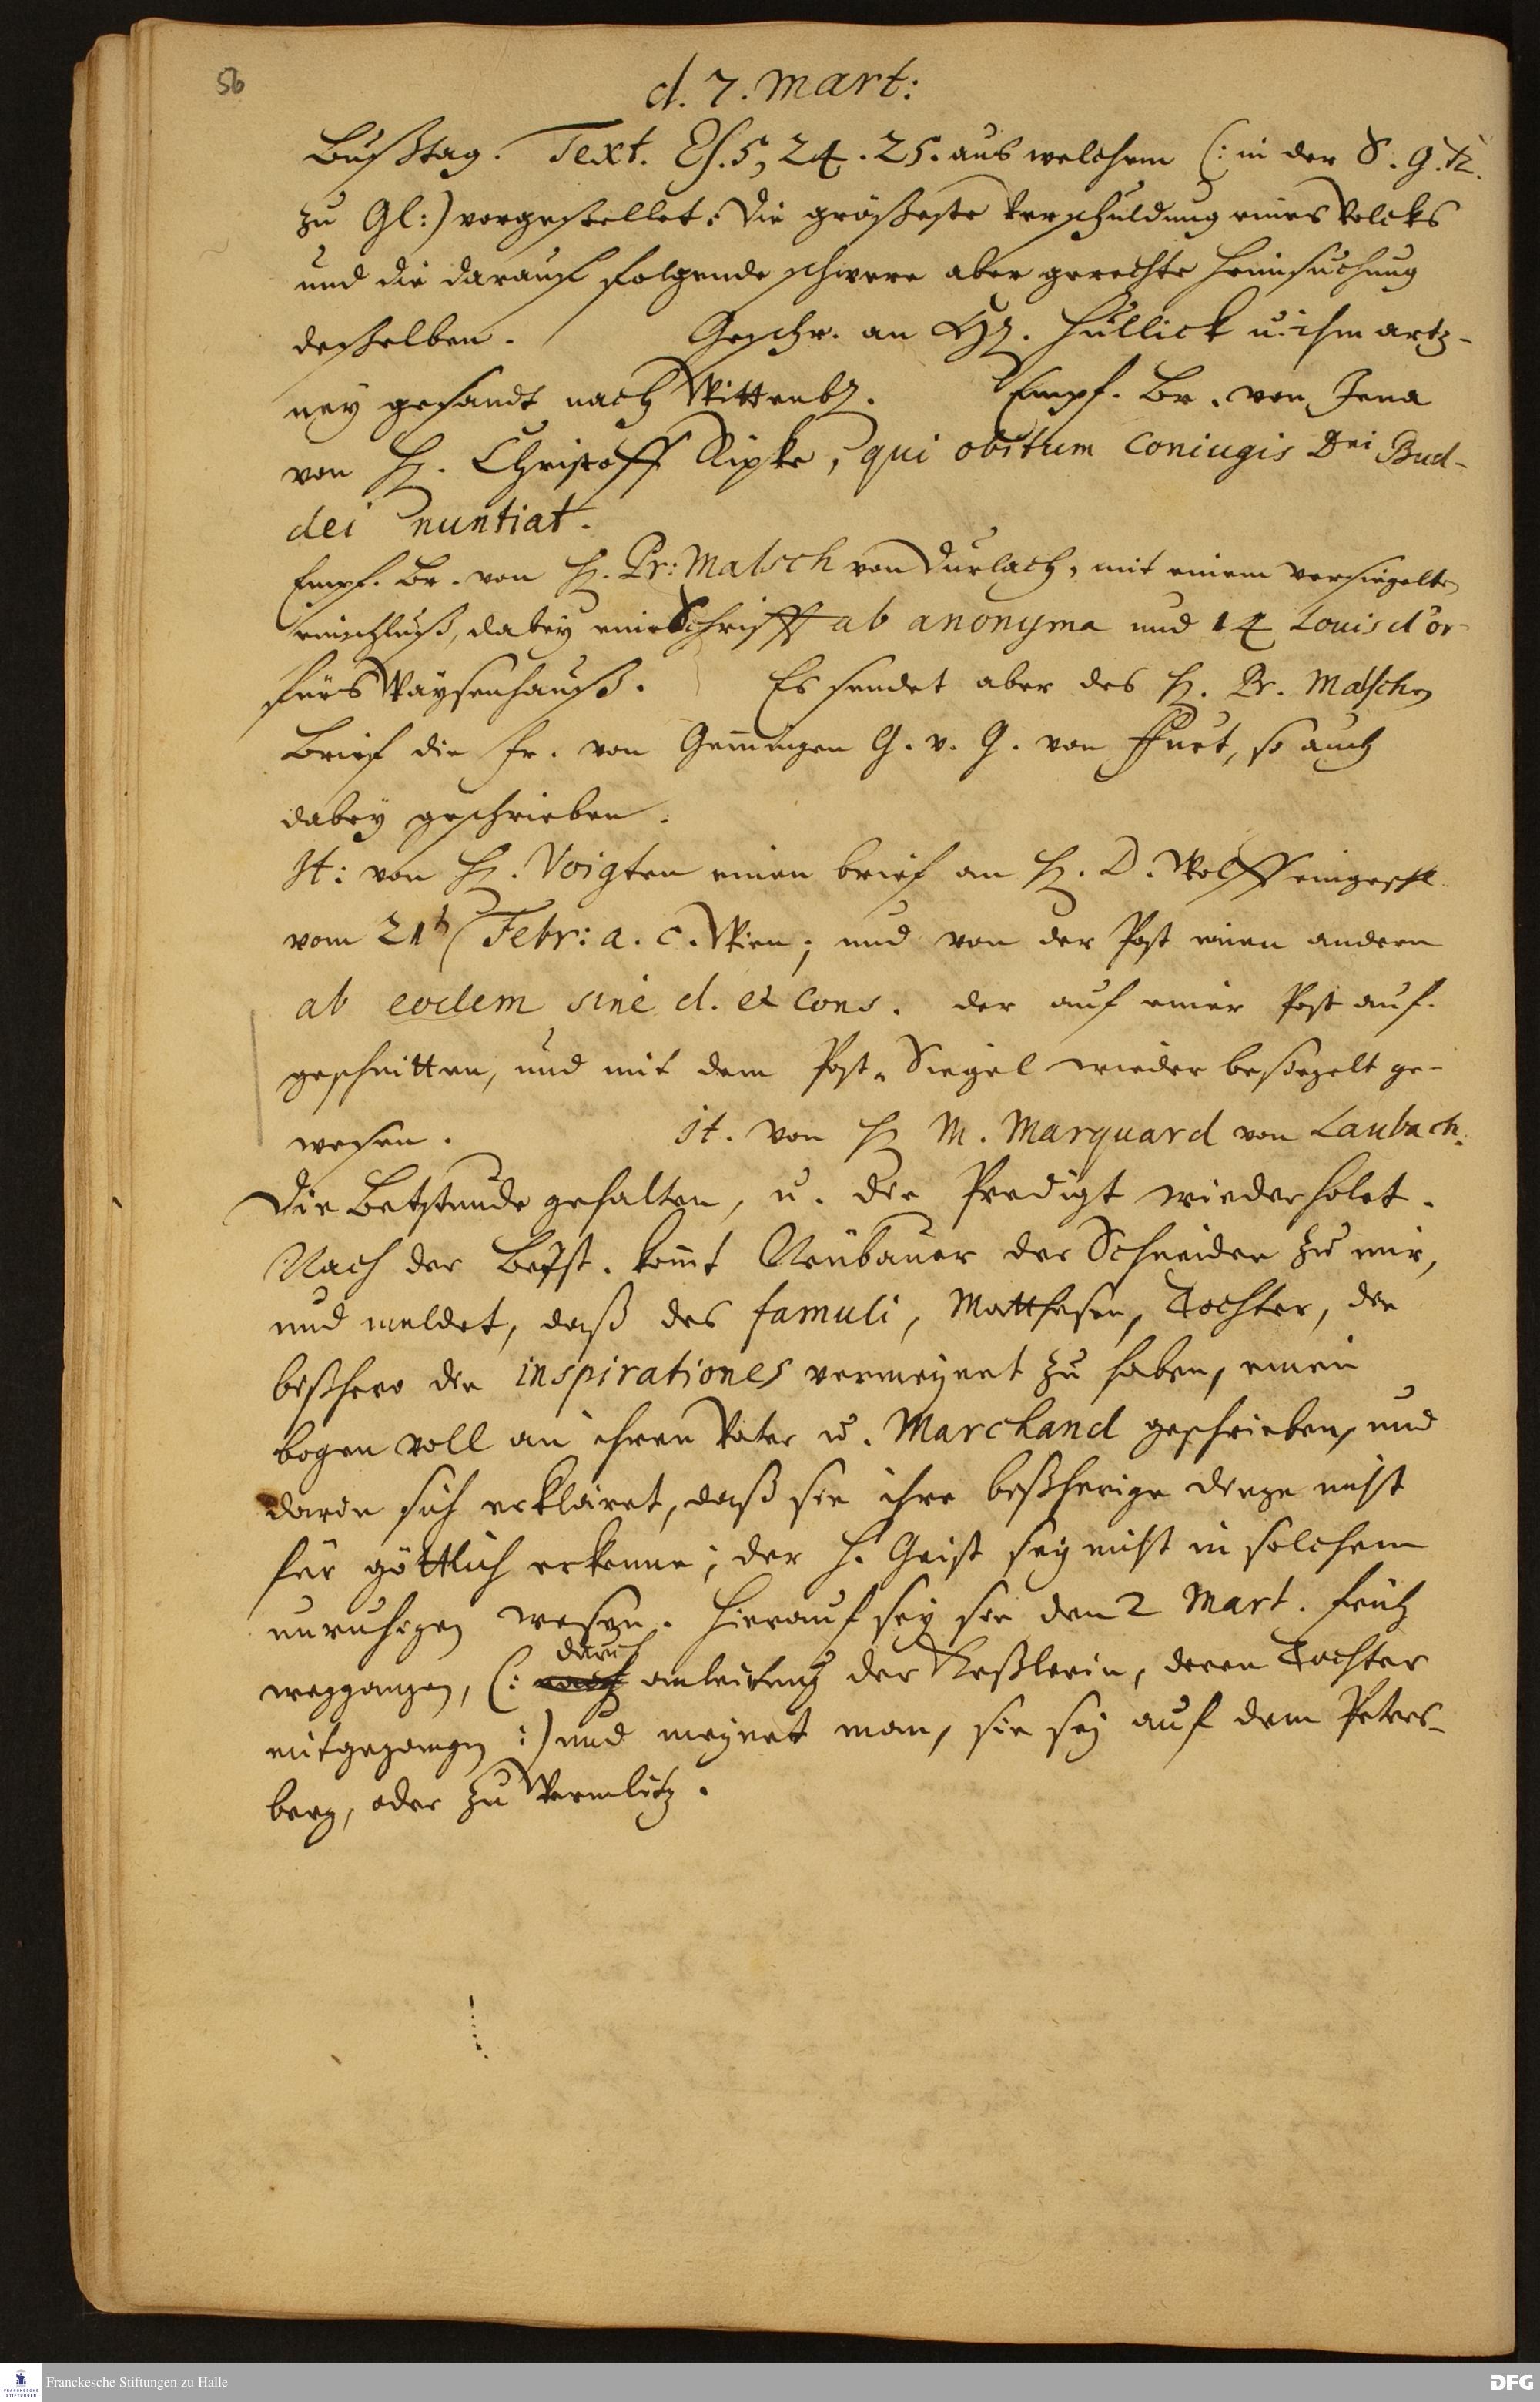 56
d. 7. Mart:
Bußtag. Text. Es. 5, 24. 25. aus welchem (: in der S. g. K.
zu Gl:) vorgestellet: Die größeste Verschuldung eines Volcks
und die darauf folgende schwere aber gerechte Heimsuchung
desselben. Geschr. an Hüllick u. ihm artz-
ney gesandt nach Wittenb. Empf. Br. von Jena
von H. Christoff Ripke, qui obitum coniugis Dni Bud-
dei nuntiat.
Empf. Br. von H. Pr: Malsch von Durlach, mit einem versiegelten
einschluß, dabey eine Schrifft ab anonyma und 14 Louis d'or
fürs Waysenhauß. Es sendet aber des H. Pr. Malschen
Brief die Fr. von Gemmingen G. v. G. von Furt, so auch
dabey geschrieben.
It: von H. Voigten einen brief an H. D. Wolff eingeschl.
vom 21 Febr: a. c. Wien; und von der Post einen andern
ab eodem sine d. et cons. der auf einer Post auf-
geschnitten, und mit dem Post-Siegel wieder besiegelt ge-
wesen. it. von H M. Marquard von Laubach.
Die Betstunde gehalten, u. die Predigt wiederholet.
Nach der Betst. komt Neubauer der Schneider zu mir,
und meldet, daß des famuli, Matthesen, Tochter, die
bißhero die inspirationes vermeynet zu haben, einen
bogen voll an ihren Vater u. Marchand geschrieben, und
darin sich erkläret, daß sie ihre bißherige dinge nicht
für göttlich erkenne; der H. Geist sey nicht in solchem
unruhigen wesen. Hierauf sey sie den 2 Mart. früh
weggangen, (: nach durch anleitung der Keßlerin, deren Tochter
mitgegangen :) und meynet man, sie sey auf dem Peters-
berg, oder zu Wermlitz.
Franckesche Stiftungen zu Halle
DFG